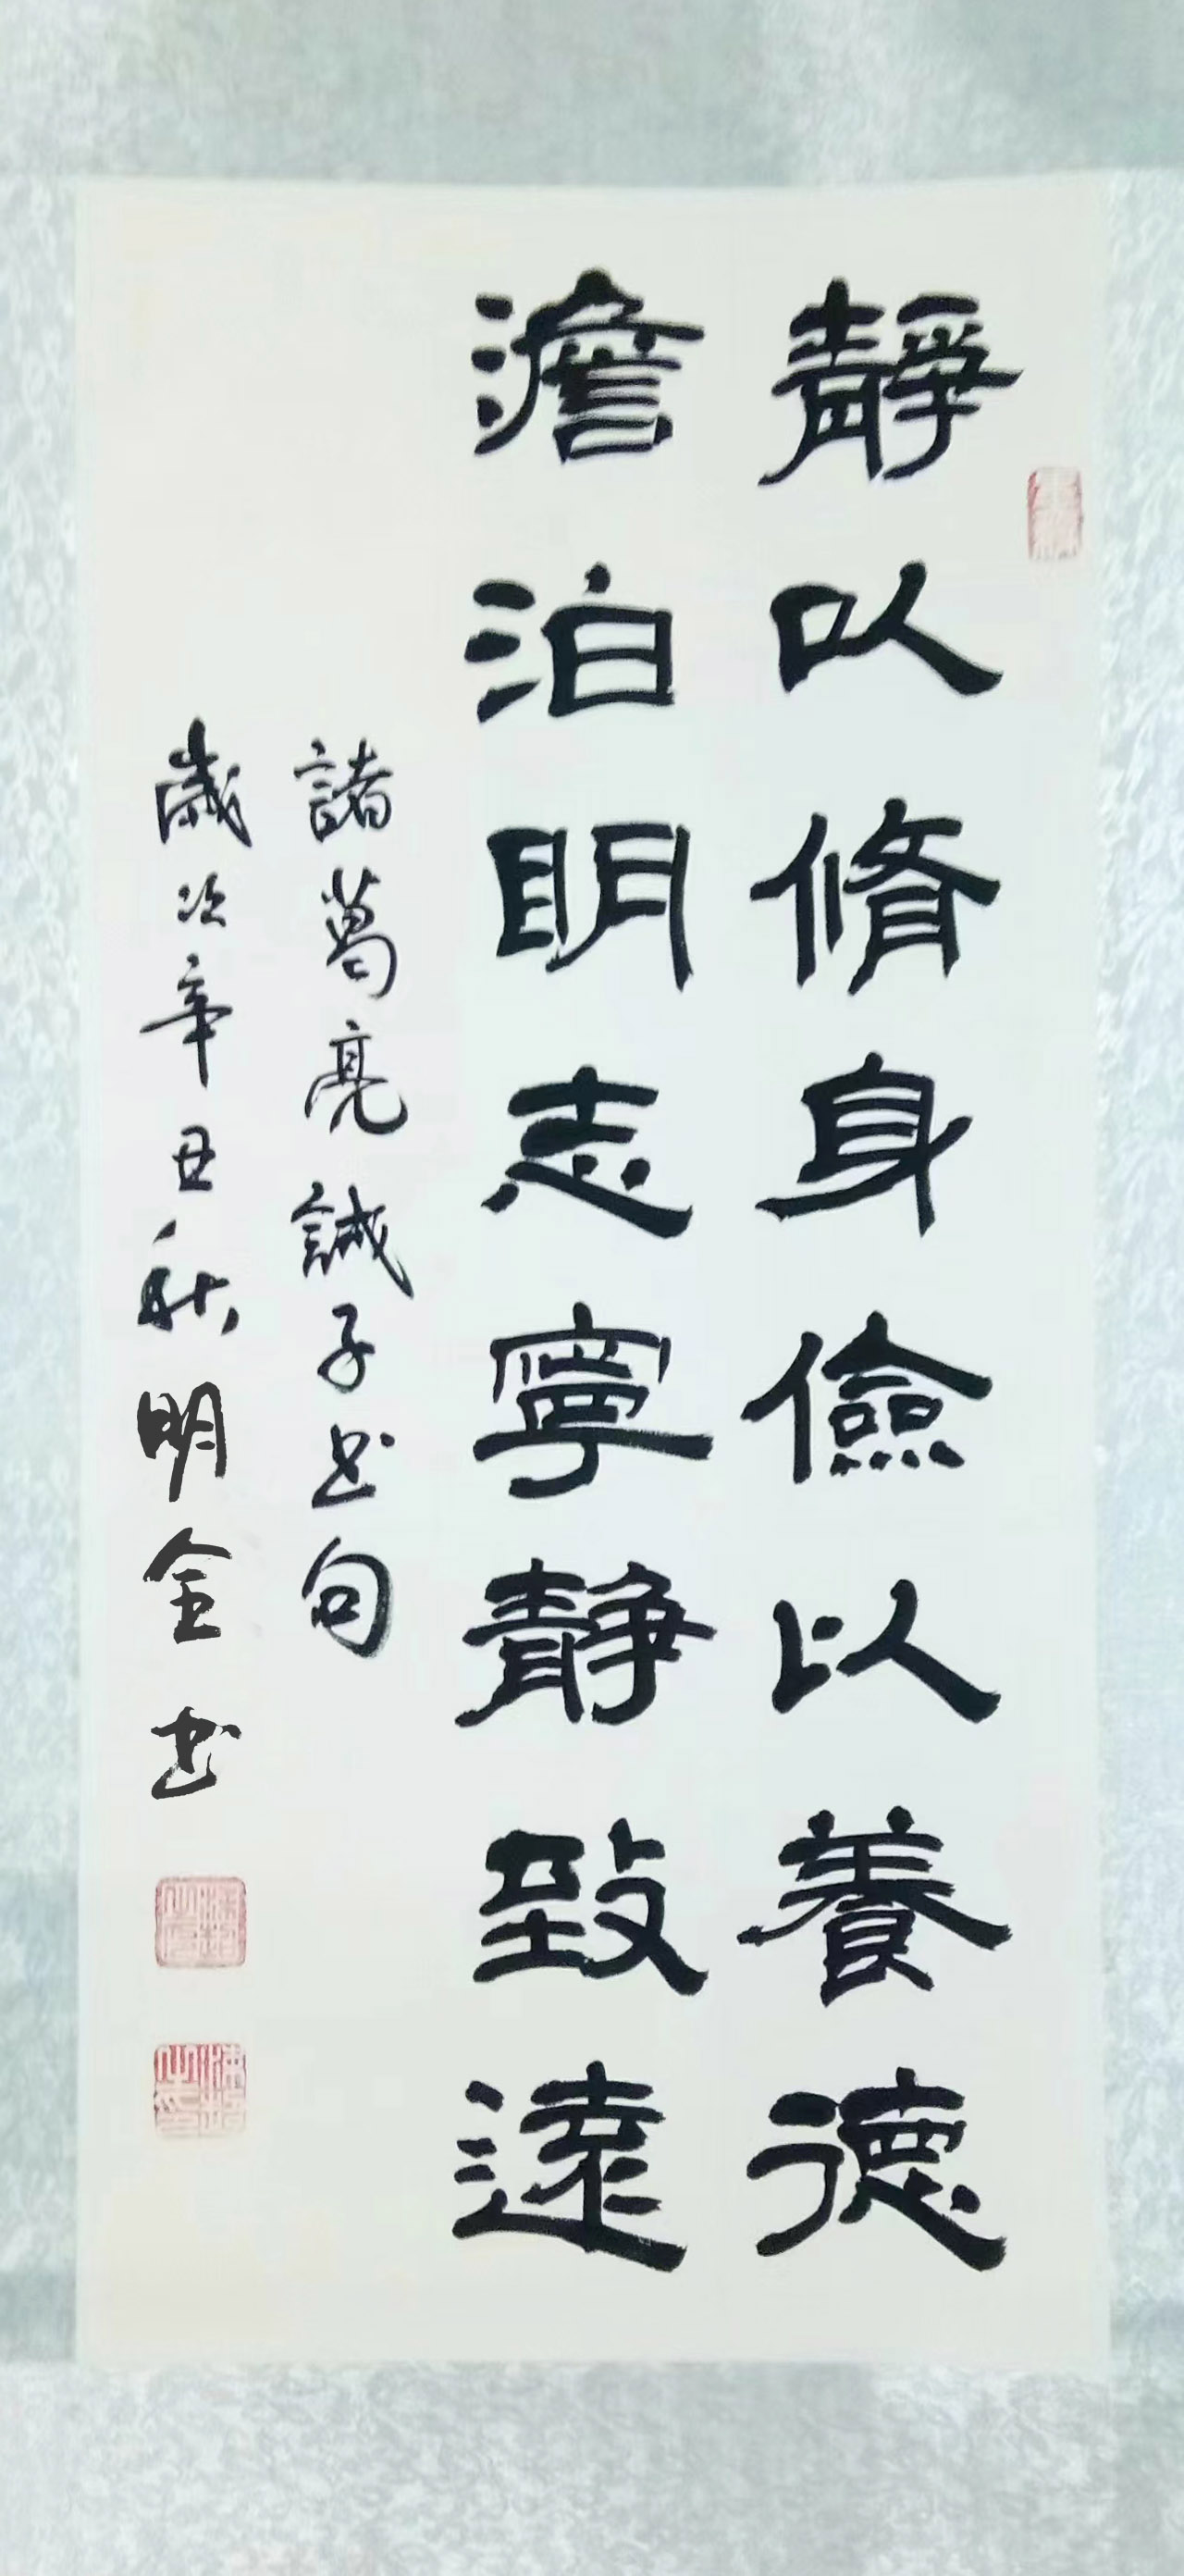 靜以脩身儉以養德
澹泊明志寧靜致遠
諸葛亮誡子书句
歲次辛丑秋明全书